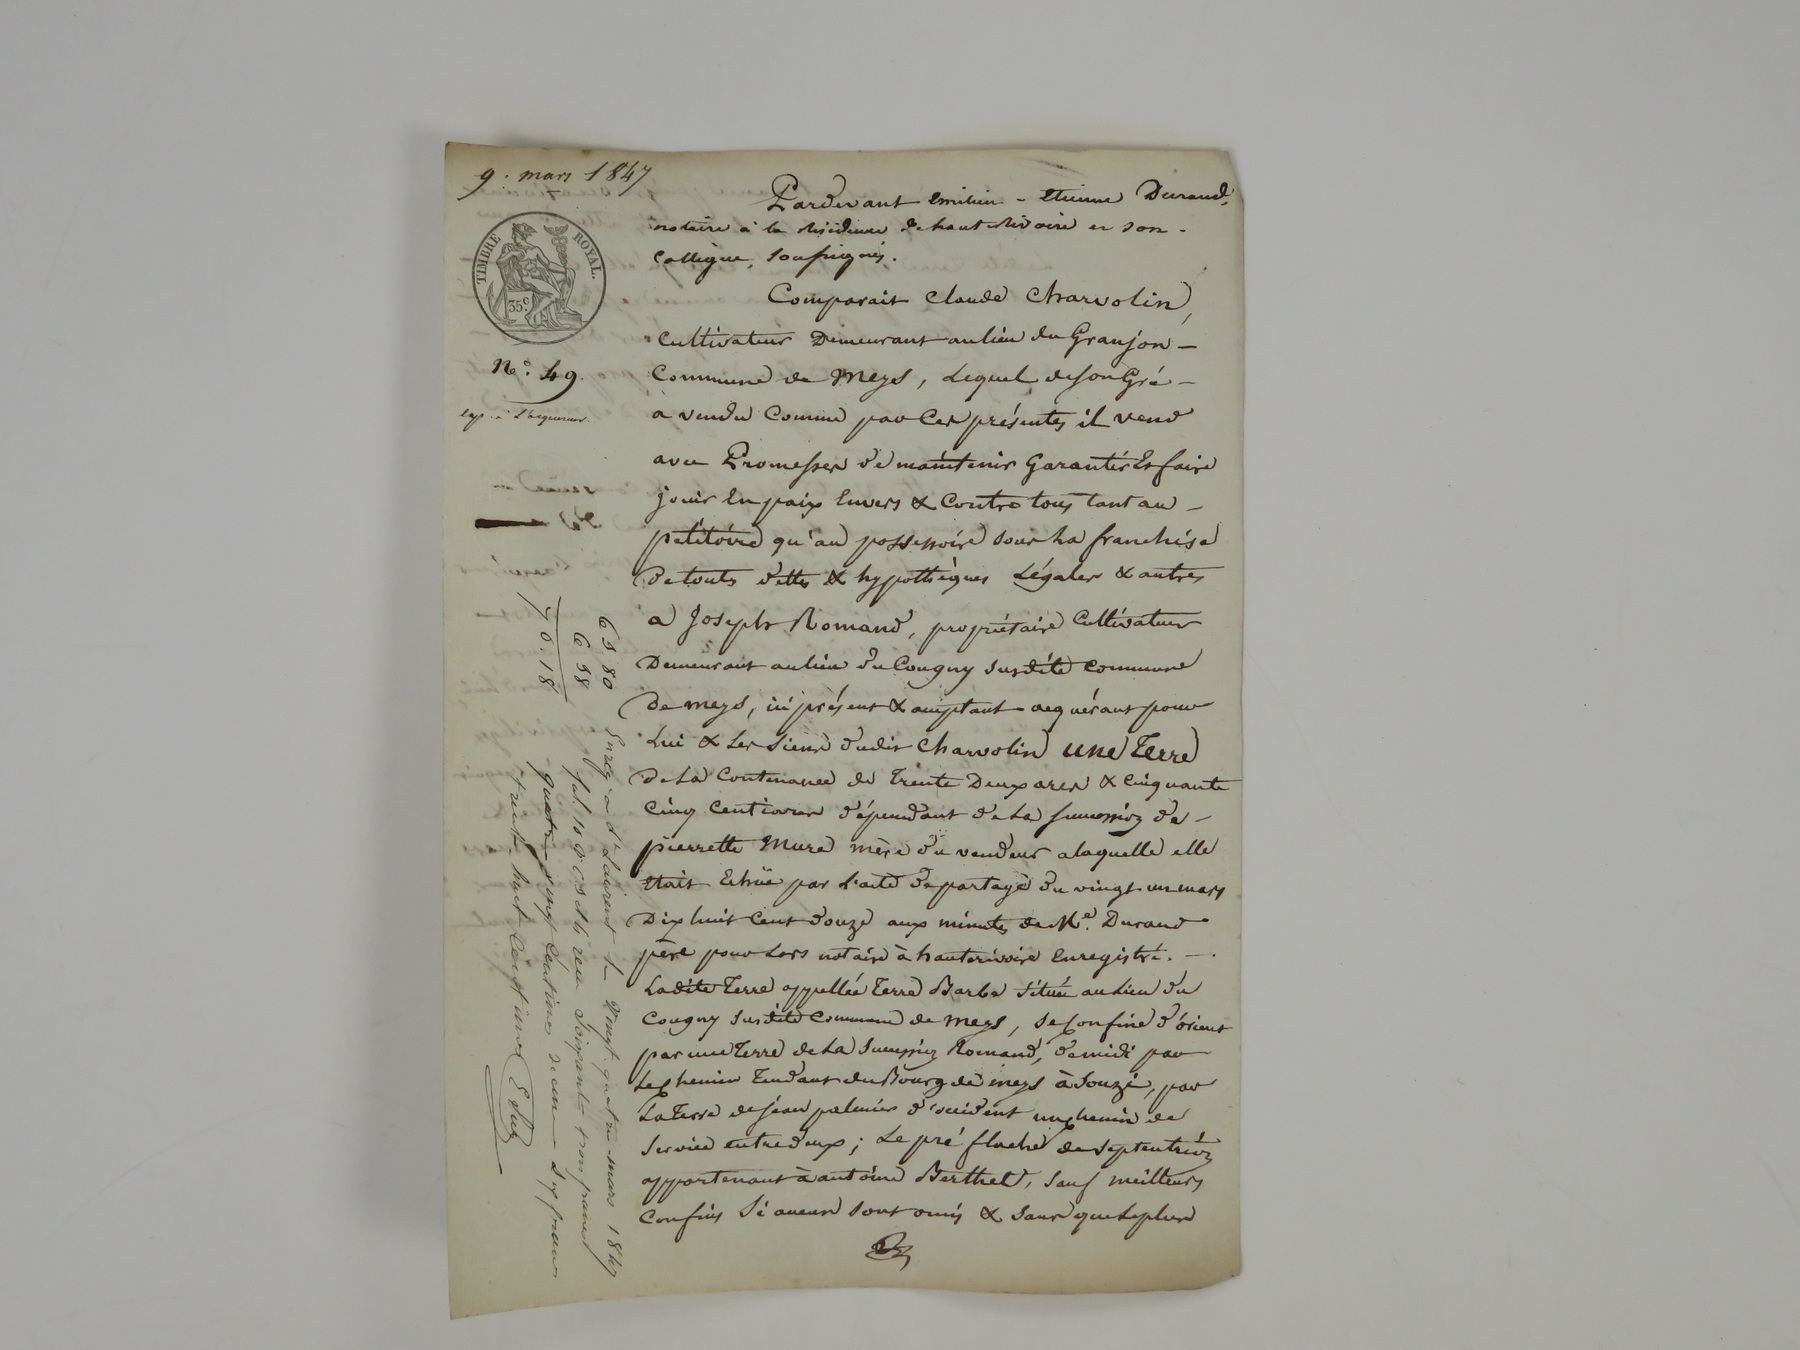 9. mars 1847
TIMBRE ROYAL.
35 c.
N.° 49.
exp. à l'acquereur.
Pardevant Emilien - Etienne Durand,
notaire à la Résidence de haut Rivoire et son -
Collègue, Soussignés.
Comparait Claude Charvolin,
Cultivateur Demeurant au lieu du Granjon -
Commune de Meys, Lequel de son Gré -
à vendu Comme par Ces présentes il vend
avec Promesses de maintenir Garantir Et faire
jouir En paix Envers & Contre tous tant au -
pétitoire qu'au possessoire sous La franchise
De touts dettes & hypothèques Légales & autres
a Joseph Romand, propriétaire Cultivateur
Demeurant au lieu du Cougny susdite Commune
De meys, ici présent & acceptant acquérant pour
Lui & Les Siens dudit Charvolin une Terre
De La Contenance de Trente Deux ares & Cinquante
Cinq Centiares dépendant de La succession de -
pierrette Mure mère du vendeur a laquelle elle
était Echüe par L'acte de partage du vingt un mars
Dix huit Cent douze aux minutes de Me. Durand
père pour Lors notaire à hauterivoire Enregistré. -.
Ladite Terre appellée Terre Barbe située au Lieu du
Cougny susdite Commune de Meys, se Confine d'orient
par une Terre de La Succession Romand, de midi par
Le Chemin Tendant du Bourg de meys à Souzi, par
La Terre de jean d'occident un chemin de
Service entre deux; Le pré de septentrion
appartenant à antoine Berthet, sauf meilleurs
Confins Si aucuns sont omis & sans que Le plus
63 80
6 38
70. 18
Enreg. à St Laurent le Vingt quatre mars 1847
fol. 10 reçu Soixante trois francs
quatre vingt Centimes decime Six francs
trente huit Centimes